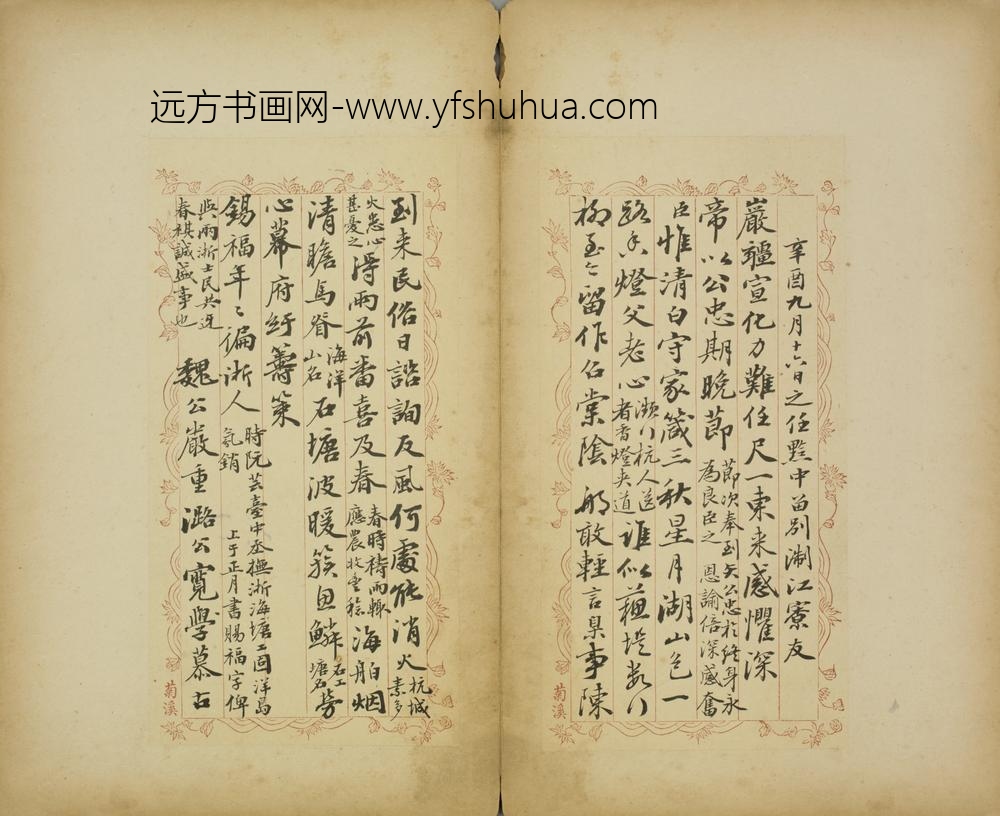 远方书画网-www.yfshuhua.com
辛酉九月十六日之任黔中留别淛江寮友
巖疆宣化力難任尺一東来感懼深
帝以公忠期晚節節次奉到矢公忠於終身永為良臣之恩諭倍深感奮
臣惟清白守家箴三秋星月湖山色一
路香燈父老心瀕行杭人送者香燈夹道誰似蘓堤数行
柳至今留作召棠陰 那敢輕言臬事陳
到来民俗日諮詢反風何處能消火杭城素多火患心甚憂之
得雨前番喜及春春時禱雨輙應農收豊稔海舶烟
清瞻馬脊海洋山名石塘波暖簇魚鱗石工塘名勞
心幕府紆籌策
錫福年年徧浙人時阮芸臺中丞撫浙海塘工固洋島氛銷上于正月書賜福字俾
與兩浙士民共迓春祺誠盛事也魏公嚴重潞公寛學慕古
菊溪
菊溪